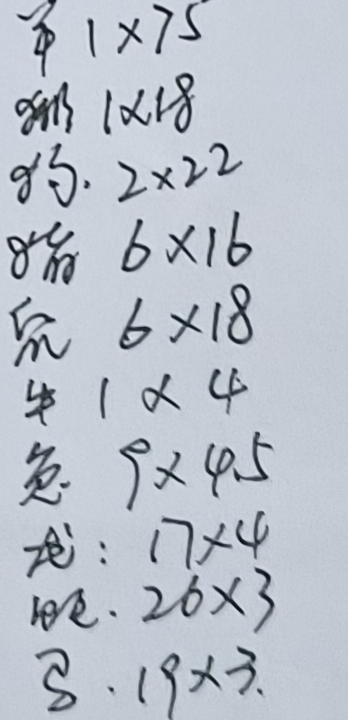 羊 1×75
猴 1×18
狗. 2×22
猪 6×16
鼠 6×18
牛 1×4
兔. 9×4.5
龙: 17×4
蛇. 26×3
马. 19×3.